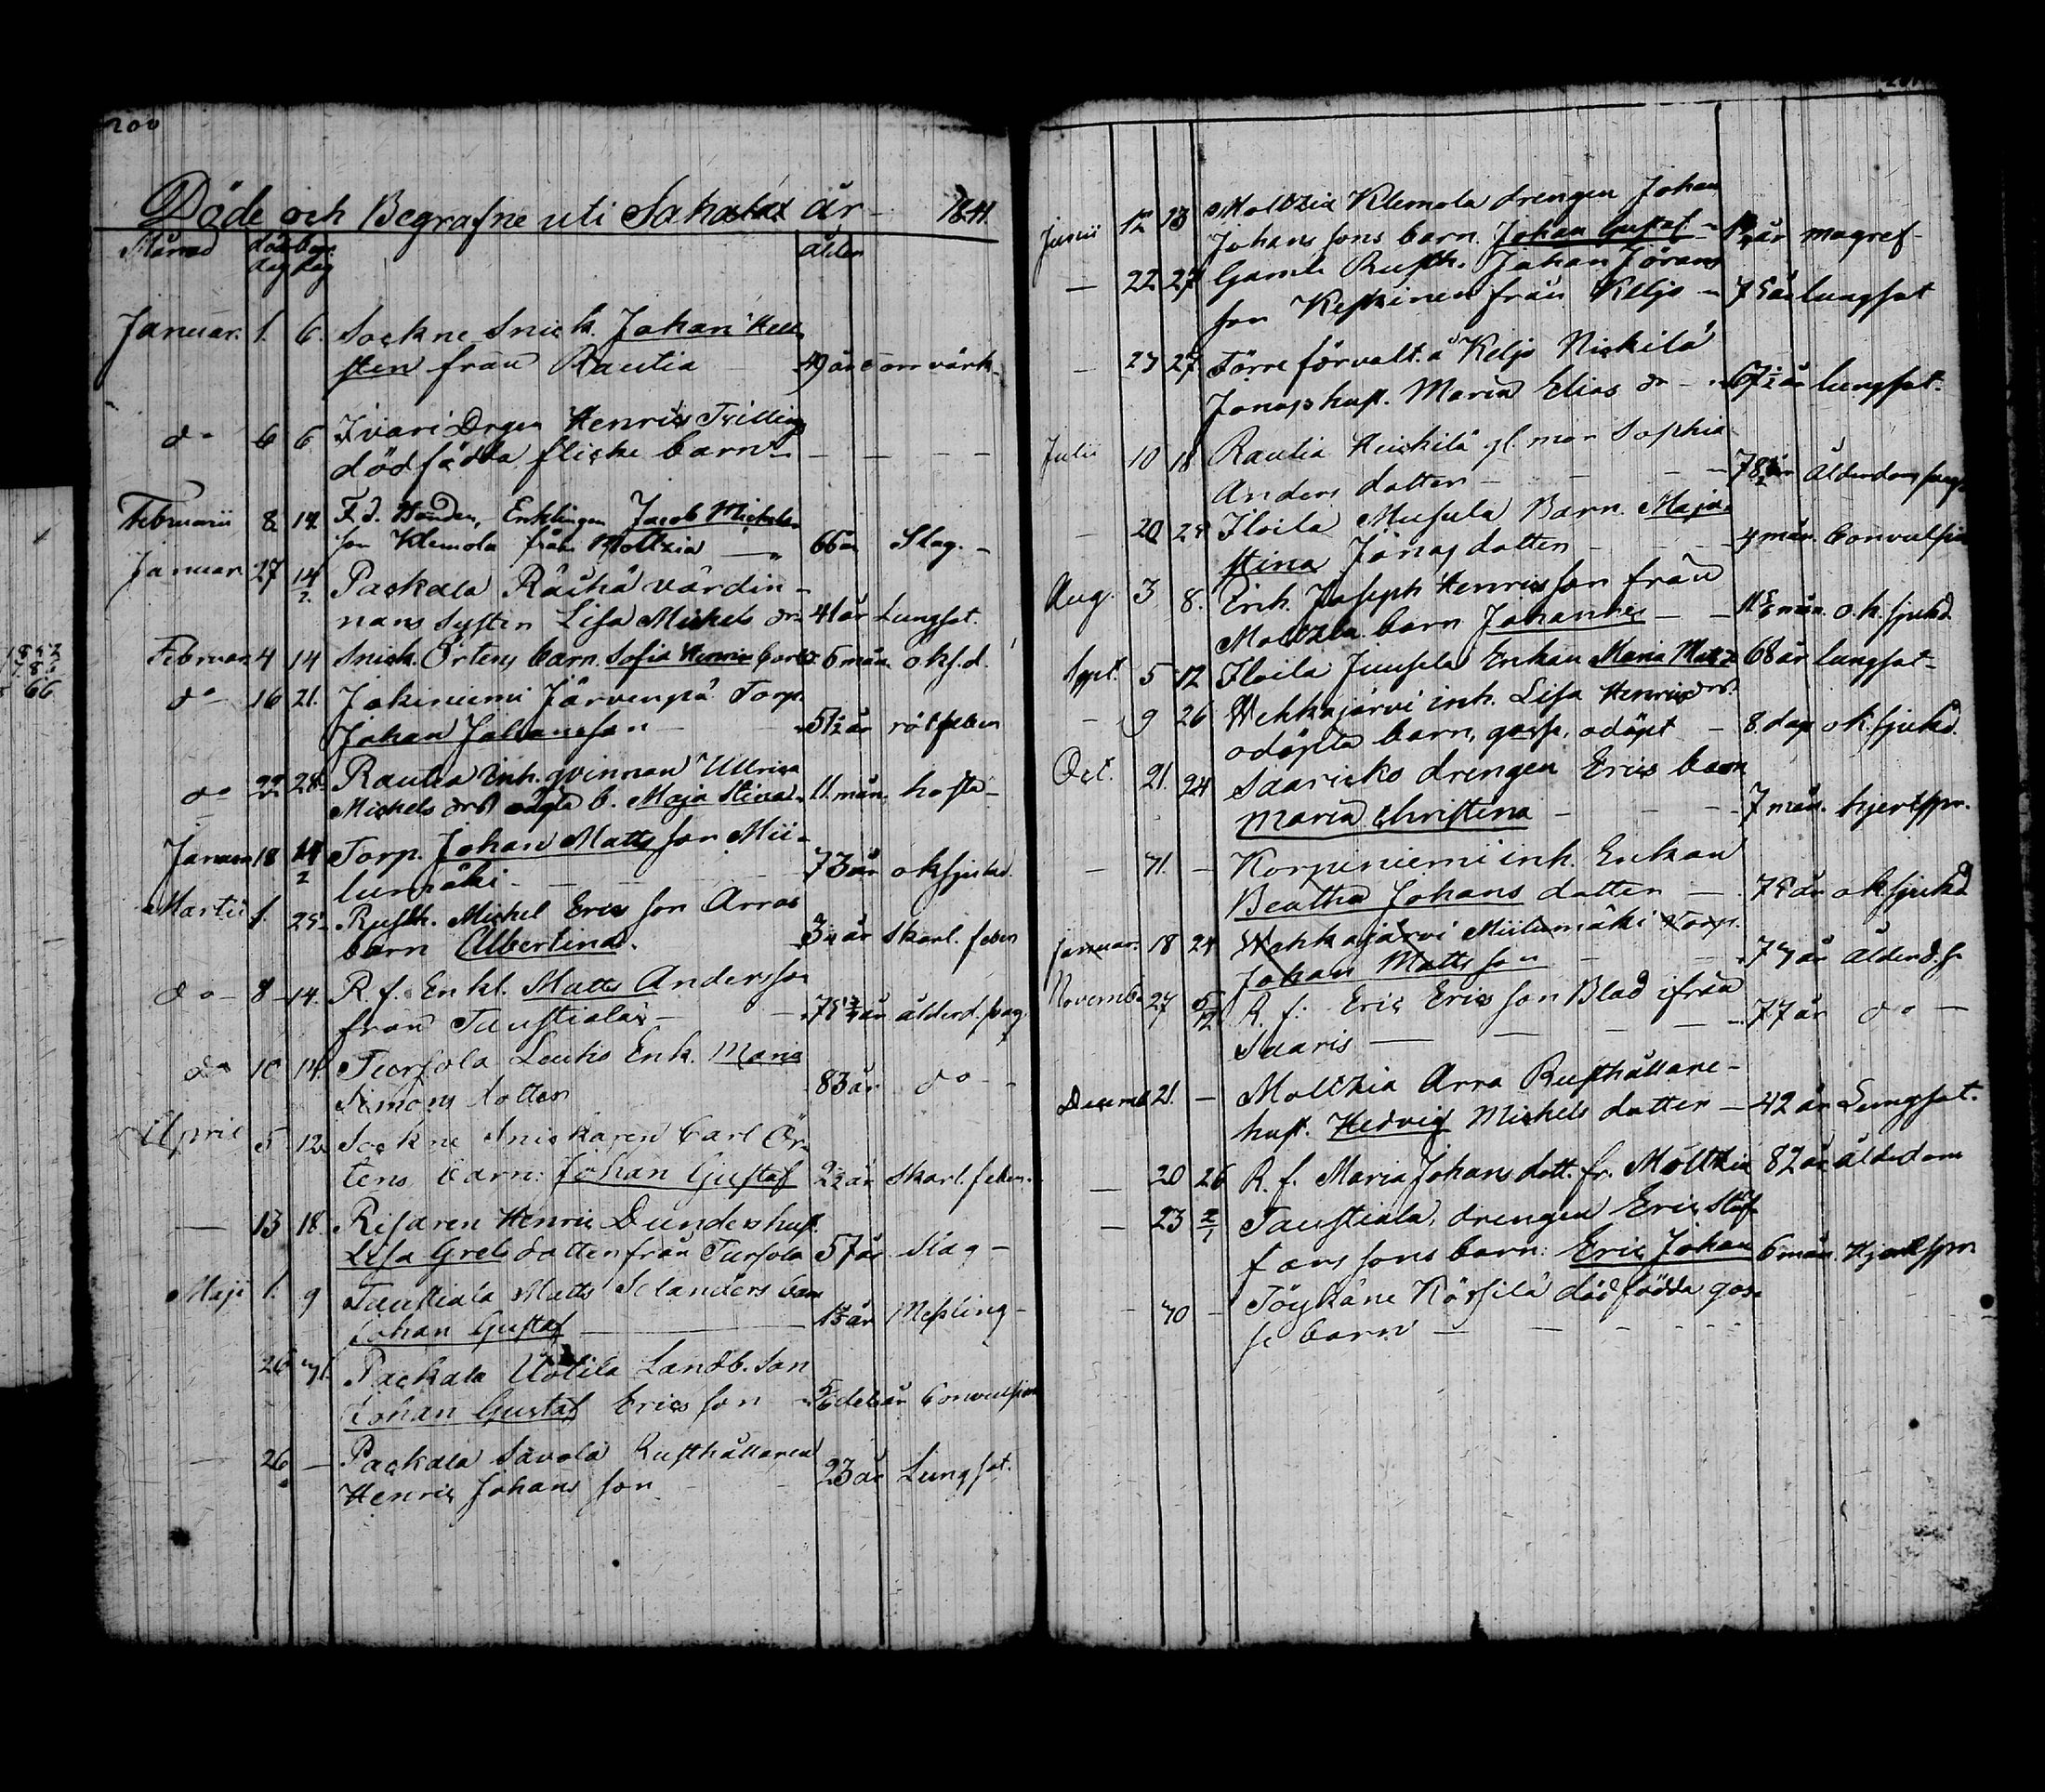 200
Döde och Begrafne uti Sahalax år 1841
Månad döds dag begr. dag ålder
Januar. 1. 6. Sockne Snick. Johan Hell
sten från Rautia 49 år torrvärk
do 6 6 Ivari Drgen Henrics Trilling
dödfödda flicke barn
Februarii 8 14 F. d. Bonden, Enklingen Jacob Michels
son Klemola från Moltzia 66 år Slag.
Januar. 27 14/2 Packala Räihä värdin-
nans syster Lisa Michels dr 41 år Lungsot.
Februar. 4 14 Snick. Örtens barn. Sofia Henrica 6 mån. ok. s.d.
do 16 21. Jokiniemi Järvenpä Torp.
Johan Johansson 51½ år rötfeber
do 22 28 Rautia Inh. qvinnan Ullrica
Michels drs oägta b. Maja Stina 11. mån. hosta
Januar 18 14/2 Torp. Johan Matts son Mii-
lumäki 73 år ok sjukd.
Martii 1. 25 Rusth. Michel Erics son Arras
barn Albertina. 3 år skarl. feber
do 8 14. R. f. Enkl. Matts Andersson
från Taustiala 75¾ år ålderd. svag
do 10 14. Tursola Leuho Enk. Maria
Simons dotter 83 år do
April 5 12 Sockne Snickaren Carl Ör-
tens barn: Johan Gustaf 2½ år Skarl. feber.
13 18. Risaren Henric Dunders hust.
Lisa Grels dotter från Tursola 57 år Slag
Maji 1. 9 Taustiala Matts Selanders barn
Johan Gustaf 1½ år Messling
26 31. Packala Uotila Landb. Son
Johan Gustaf Erics son Convulsion
26 Packala Savola Rusthållaren
Henric Johans son 23 år Lungsot.
Junii 12 13 Moltzia Klemola drengen Johan
Johans sons barn. Johan Gustaf år magref
22 27 Gamle Rusth. Johan Jörans
son Keskinen från Keljo 75 år lungsot
23 27 Förre förvalt. å Keljo Nickilä
Jonas hust. Maria Elias dr 67½ år lungsot.
Julii 10 18 Rautia Heickilä gl. mor Sophia
Anders dotter 78½ år Ålderdoms svag.
20 25 Iloila Musula Barn Maja
stina Jonas dotter 4 mån. Convulsion
Aug. 3 8. Enk. Joseph Henrics son från
Moltzia barn Johannes 11 mån. o.k. sjukd
Sept. 5 12 Iloila Juusela Enkan Maria Matts dr 68 år lungsot
9 26 Wehkajärvi inh. Lisa Henrics drs.
odöpta barn, gosse, odöpt 8 dag. ok. sjukd.
Oct. 21. 24 Saarisko drengen Erics barn
Maria Christina 7 mån. hjertspr.
31. Korpiniemi inh. Enkan
Beatha Johans dotter 75 år ok. sjukd
Januar. 18 24 Wehkajärvi Miilumäki Torp.
Johan Matts son 73 år ålderd. s.
Novemb. 27 5/12 R. f. Eric Erics son Blad ifrån
Saaris 77 år do
Decemb 21. Moltzia Arra Rusthållare-
hust. Hedvig Michels dotter 42 år Lungsot.
20 26 R. f. Maria Johans dott. fr. Moltzia 82 år ålderdom
23 2/1 Taustiala, drengen Eric Staf-
fans sons barn: Eric Johan 6 mån. Hjertspr.
30 Töykäne Körsilä dödfödda gos-
se barn